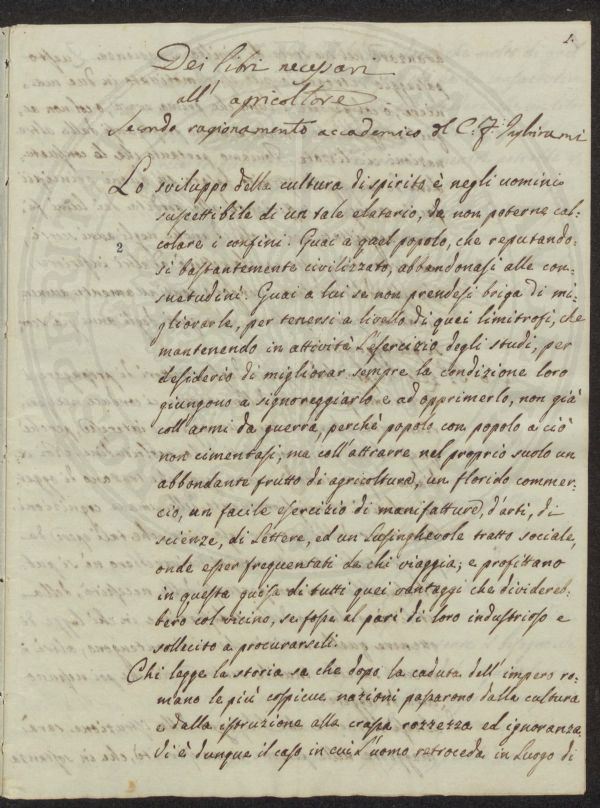 1.
Dei libri necessari
all' agricoltore
Secondo ragionamento accademico del C. F. Inghirami
Lo sviluppo della cultura di spirito è negli uomini
suscettibile di un tale elaterio, da non poterne cal-
colare i confini. Guai a quel popolo, che reputando-
2
si bastantemente civilizzato, abbandonasi alle con-
suetudini. Guai a lui se non prendesi briga di mi-
gliorarle, per tenersi a livello di quei limitrofi, che
mantenendo in attività l'esercizio degli studi, per
desiderio di migliorar sempre la condizione loro
giungono a signoreggiarlo e ad opprimerlo, non già
coll'armi da guerra, perchè popolo con popolo a ciò
non cimentasi; ma coll'attrarre nel proprio suolo un
abbondante frutto di agricoltura, un florido commer-
cio, un facile esercizio di manifatture, d'arti, di
scienze, di Lettere, ed un Lusinghevole tratto sociale,
onde esser frequentati da chi viaggia; e profittano
in questa guisa di tutti quei vantaggi che dividereb-
bero col vicino, se fosse al pari di loro industrioso e
sollecito a procurarseli.
Chi legge la storia sa che dopo la caduta dell'impero ro-
mano le più cospicue nazioni passarono dalla cultura
e dalla istruzione alla crassa rozzezza ed ignoranza
Vi è dunque il caso in cui L'uomo retroceda in Luogo di